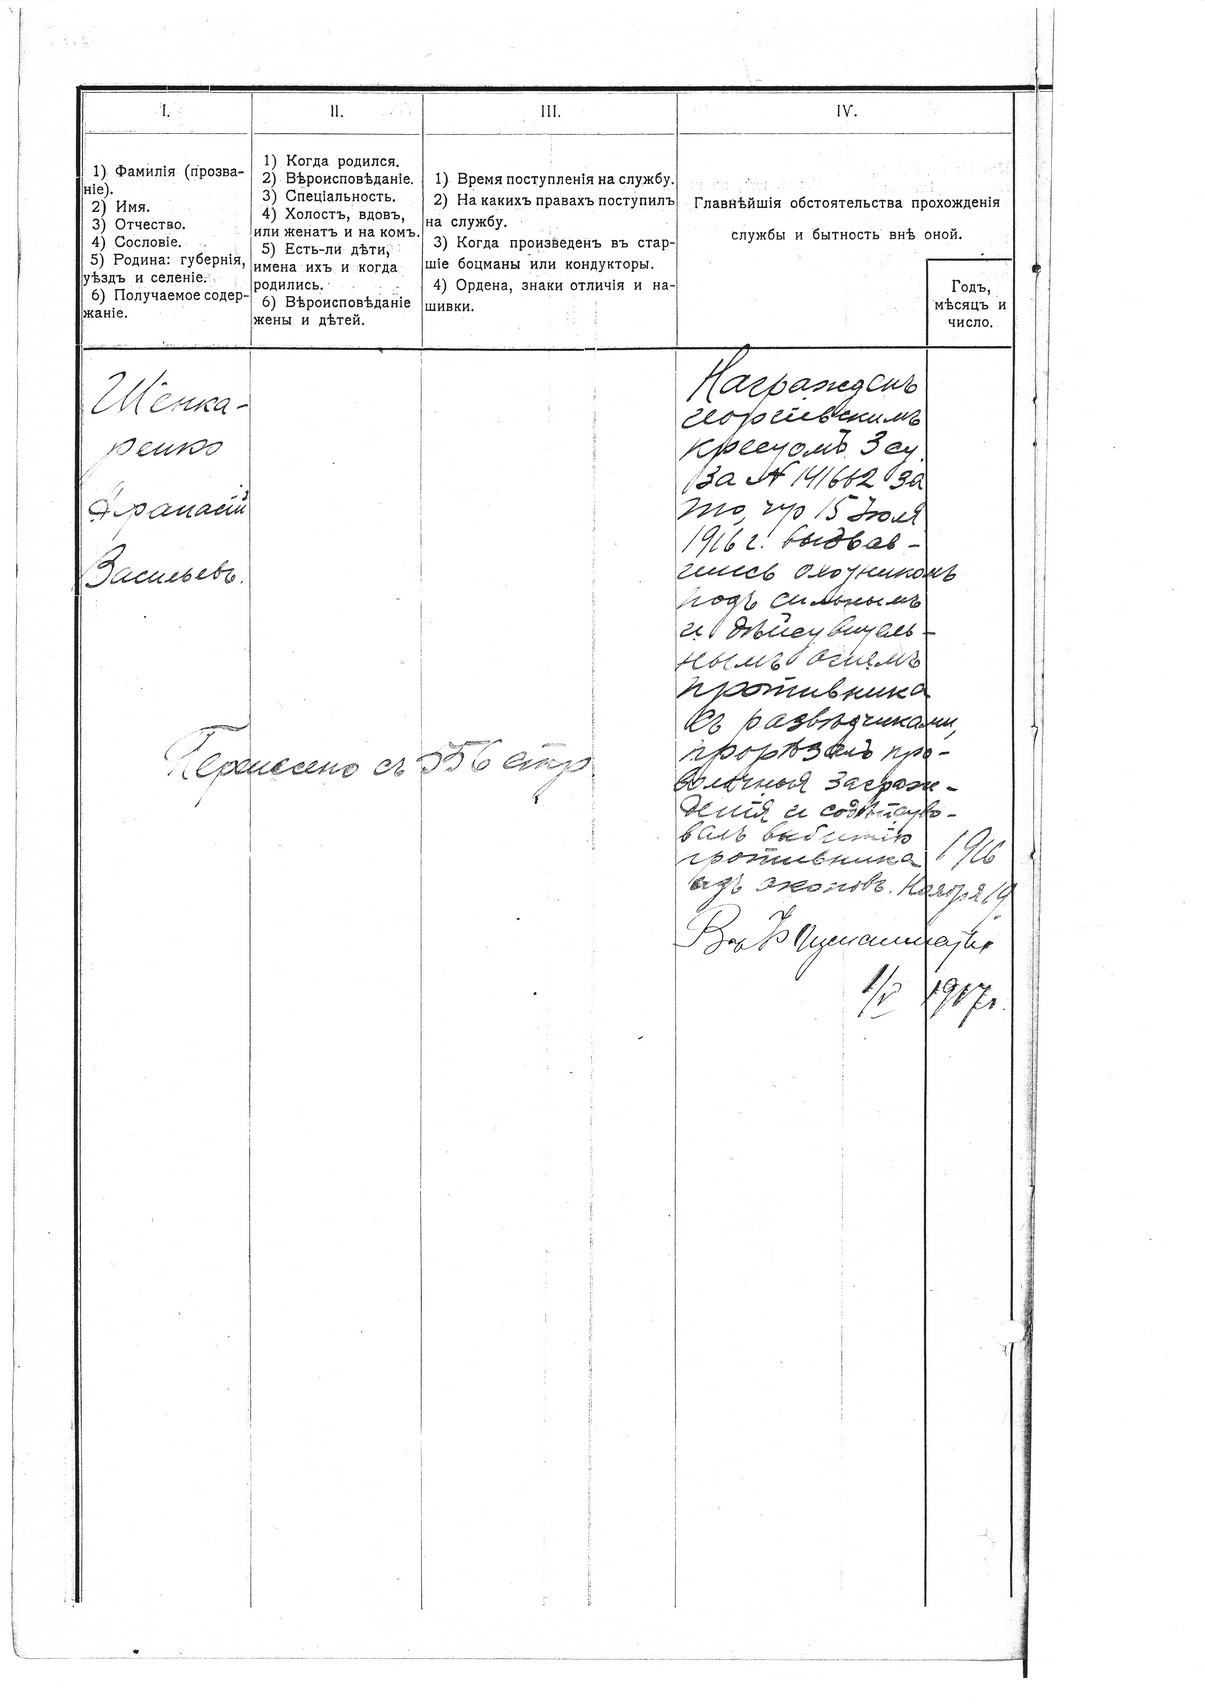 I.
1) Фамилія (прозва-
ніе).
2) Имя.
3) Отчество.
4) Сословіе.
5) Родина: губернія,
уѣздъ и селеніе.
6) Получаемое содер-
жаніе.
II.
1) Когда родился.
2) Вѣроисповѣданіе.
3) Спеціальность.
4) Холостъ, вдовъ,
или женатъ и на комъ.
5) Есть-ли дѣти,
имена ихъ и когда
родились.
6) Вѣроисповѣданіе
жены и дѣтей.
III.
1) Время поступленія на службу.
2) На какихъ правахъ поступилъ
на службу.
3) Когда произведенъ въ стар-
шіе боцманы или кондукторы.
4) Ордена, знаки отличія и на-
шивки.
IV.
Главнѣйшія обстоятельства прохожденія
службы и бытность внѣ оной.
Годъ,
мѣсяцъ и
число.
Шенка-
ренко
Афанасій
Васильевъ.
Перенесено съ 556 стр.
Награжденъ
георгіевскимъ
крестомъ 3 ст.
за № 141662 за
то, что 15 Іюля
1916 г. вызвав-
шись охотникомъ
подъ сильнымъ
и дѣйствитель-
нымъ огнемъ
противника
съ развѣдчиками,
прорѣзалъ про-
волочныя заграж-
денія и содѣйство-
валъ выбитію
противника
изъ окоповъ. Ноября 19
1916
1/V 1917 г.